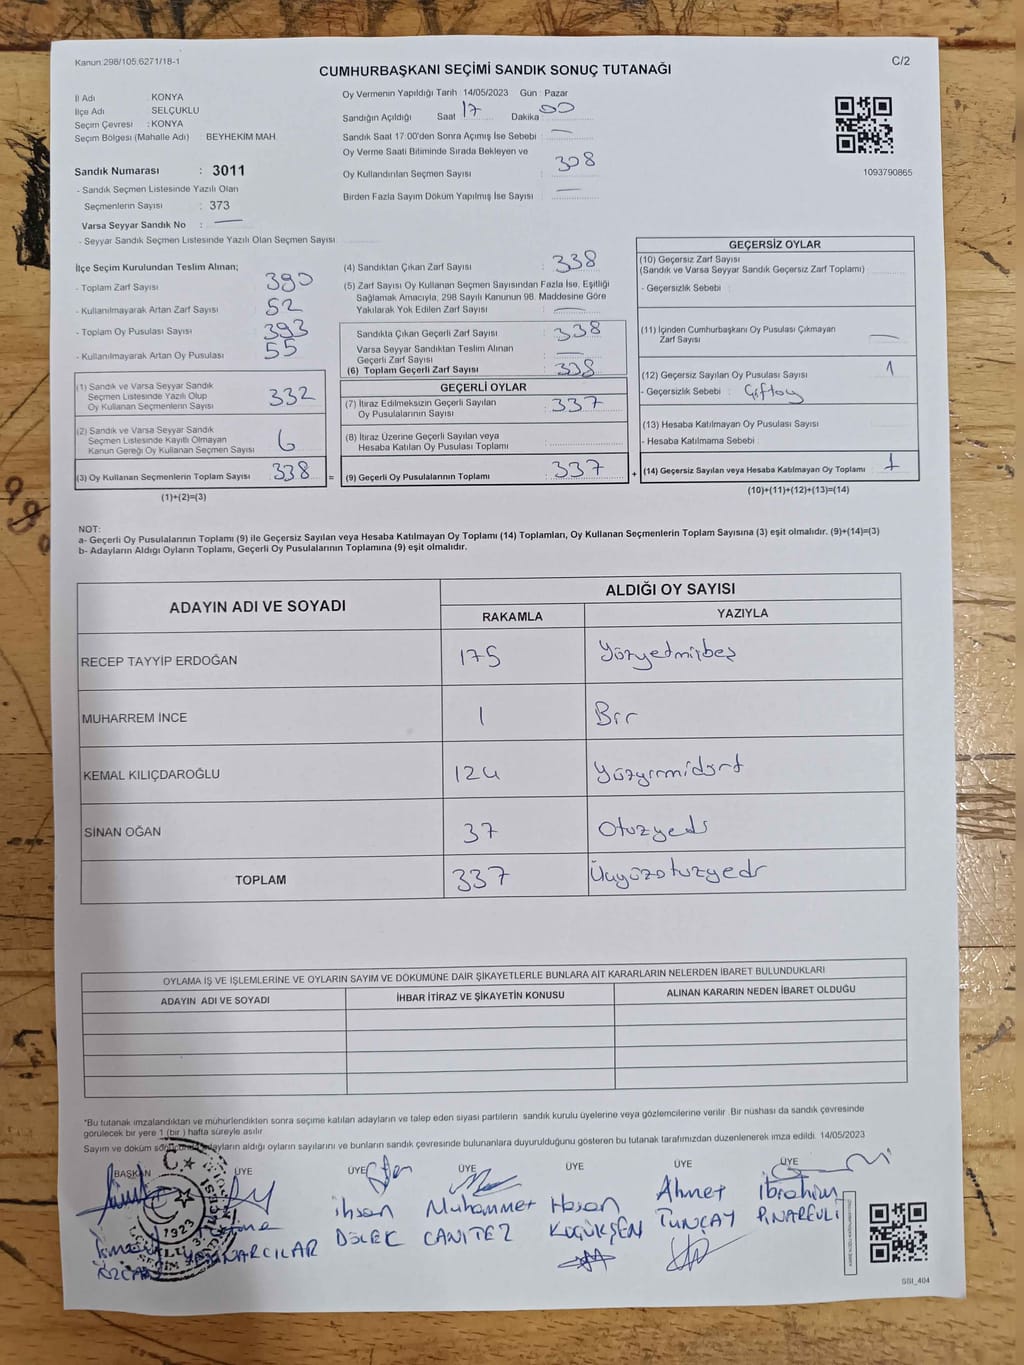 Kanun:298/105,6271/18-1
C/2
CUMHURBAŞKANI SEÇİMİ SANDIK SONUÇ TUTANAĞI
İl Adı KONYA
İlçe Adı : SELÇUKLU
Seçim Çevresi : KONYA
Seçim Bölgesi (Mahalle Adı) BEYHEKİM MAH.
Sandık Numarası : 3011
- Sandık Seçmen Listesinde Yazılı Olan
Seçmenlerin Sayısı : 373
Varsa Seyyar Sandık No :
- Seyyar Sandık Seçmen Listesinde Yazılı Olan Seçmen Sayısı
Oy Vermenin Yapıldığı Tarih 14/05/2023 Gün : Pazar
Sandığın Açıldığı Saat 17 Dakika 00
Sandık Saat 17:00'den Sonra Açımış İse Sebebi :
Oy Verme Saati Bitiminde Sırada Bekleyen ve
Oy Kullandırılan Seçmen Sayısı : 308
Birden Fazla Sayım Döküm Yapılmış İse Sayısı
1093790865
İlçe Seçim Kurulundan Teslim Alınan;
- Toplam Zarf Sayısı 390
- Kullanılmayarak Artan Zarf Sayısı 52
- Toplam Oy Pusulası Sayısı 393
- Kullanılmayarak Artan Oy Pusulası 55
(1) Sandık ve Varsa Seyyar Sandık
Seçmen Listesinde Yazılı Olup
Oy Kullanan Seçmenlerin Sayısı 332
(2) Sandık ve Varsa Seyyar Sandık
Seçmen Listesinde Kayıtlı Olmayan
Kanun Gereği Oy Kullanan Seçmen Sayısı 6
(3) Oy Kullanan Seçmenlerin Toplam Sayısı 338 =
(1)+(2)=(3)
(4) Sandıktan Çıkan Zarf Sayısı : 338
(5) Zarf Sayısı Oy Kullanan Seçmen Sayısından Fazla İse, Eşitliği
Sağlamak Amacıyla, 298 Sayılı Kanunun 98. Maddesine Göre
Yakılarak Yok Edilen Zarf Sayısı :
Sandıkta Çıkan Geçerli Zarf Sayısı : 338
Varsa Seyyar Sandıktan Teslim Alınan
Geçerli Zarf Sayısı :
(6) Toplam Geçerli Zarf Sayısı : 338
GEÇERLİ OYLAR
(7) İtiraz Edilmeksizin Geçerli Sayılan
Oy Pusulalarının Sayısı : 337
(8) İtiraz Üzerine Geçerli Sayılan veya
Hesaba Katılan Oy Pusulası Toplamı :
(9) Geçerli Oy Pusulalarının Toplamı : 337 +
GEÇERSİZ OYLAR
(10) Geçersiz Zarf Sayısı
(Sandık ve Varsa Seyyar Sandık Geçersiz Zarf Toplamı)
- Geçersizlik Sebebi :
(11) İçinden Cumhurbaşkanı Oy Pusulası Çıkmayan
Zarf Sayısı
(12) Geçersiz Sayılan Oy Pusulası Sayısı 1
- Geçersizlik Sebebi : Çiftoy
(13) Hesaba Katılmayan Oy Pusulası Sayısı
- Hesaba Katılmama Sebebi :
(14) Geçersiz Sayılan veya Hesaba Katılmayan Oy Toplamı : 1
(10)+(11)+(12)+(13)=(14)
NOT:
a- Geçerli Oy Pusulalarının Toplamı (9) ile Geçersiz Sayılan veya Hesaba Katılmayan Oy Toplamı (14) Toplamları, Oy Kullanan Seçmenlerin Toplam Sayısına (3) eşit olmalıdır. (9)+(14)=(3)
b- Adayların Aldığı Oyların Toplamı, Geçerli Oy Pusulalarının Toplamına (9) eşit olmalıdır.
ADAYIN ADI VE SOYADI
ALDIĞI OY SAYISI
RAKAMLA YAZIYLA
RECEP TAYYİP ERDOĞAN 175 Yüzyetmişbeş
MUHARREM İNCE 1 Bir
KEMAL KILIÇDAROĞLU 124 Yüzyirmidört
SİNAN OĞAN 37 Otuzyedi
TOPLAM 337 Üçyüzotuzyedi
OYLAMA İŞ VE İŞLEMLERİNE VE OYLARIN SAYIM VE DÖKÜMÜNE DAİR ŞİKAYETLERLE BUNLARA AİT KARARLARIN NELERDEN İBARET BULUNDUKLARI
ADAYIN ADI VE SOYADI İHBAR İTİRAZ VE ŞİKAYETİN KONUSU ALINAN KARARIN NEDEN İBARET OLDUĞU
*Bu tutanak imzalandıktan ve mühürlendikten sonra seçime katılan adayların ve talep eden siyasi partilerin sandık kurulu üyelerine veya gözlemcilerine verilir. Bir nüshası da sandık çevresinde
görülecek bir yere 1 (bir) hafta süreyle asılır.
Sayım ve döküm adayların aldığı oyların sayılarını ve bunların sandık çevresinde bulunanlara duyurulduğunu gösteren bu tutanak tarafımızdan düzenlenerek imza edildi. 14/05/2023
BAŞKAN ÜYE ÜYE ÜYE ÜYE ÜYE ÜYE
İhsan Muhammet Hasan Ahmet İbrahim
DÖLEK CANITEZ KÜÇÜKŞEN TUNÇAY PINAREVLİ
1923
SSI_404